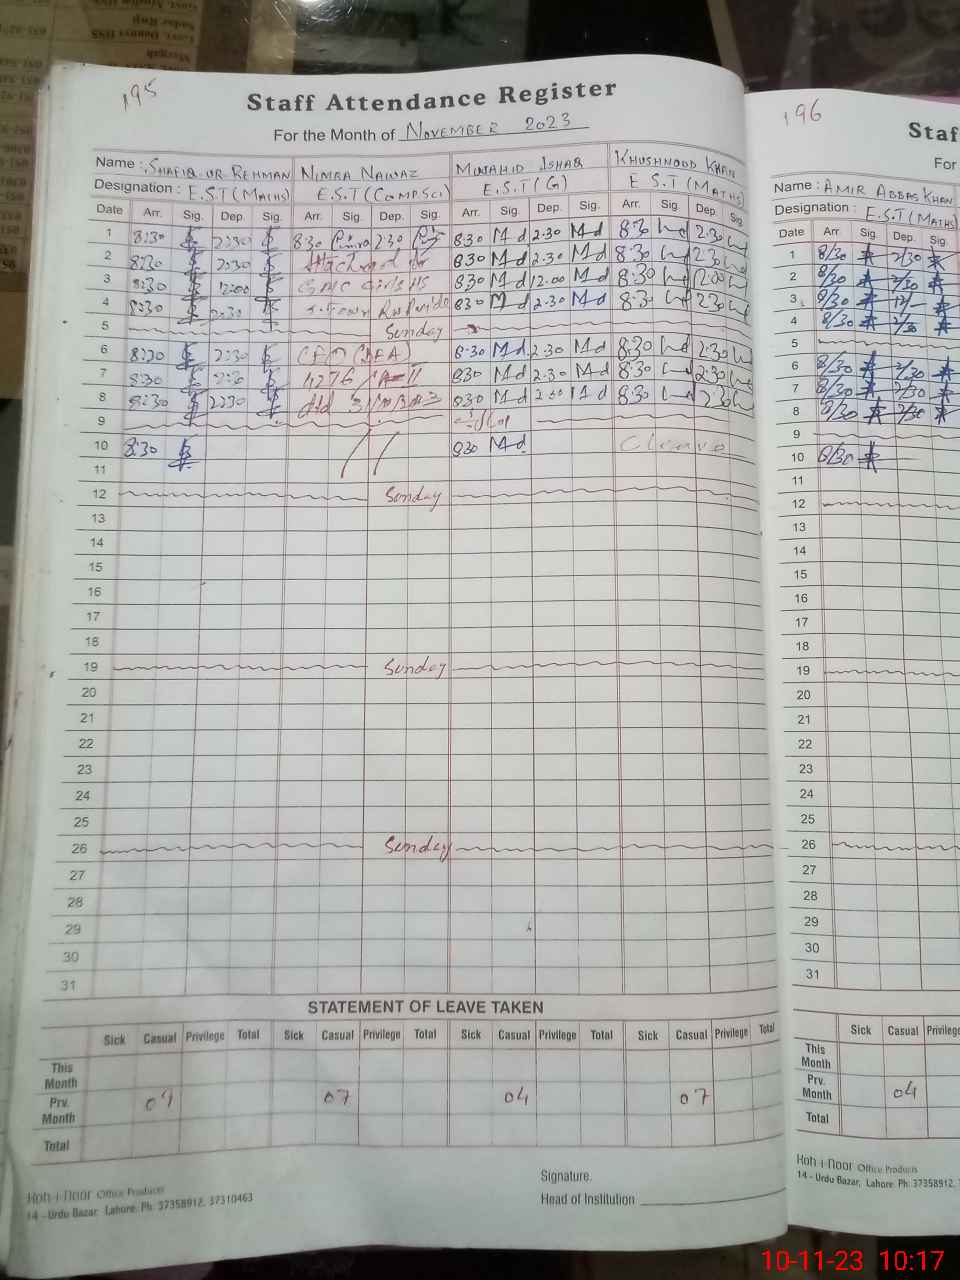 195
Staff Attendance Register
For the Month of NOVEMBER 2023
Name : SHAFIQ UR REHMAN NIMRA NAWAZ MUJAHID ISHAQ KHUSHNOOD KHAN
Designation : E.S.T (MATHS) E.S.T (COMP.SCI) E.S.T (G) E S.T (MATHS)
Date Arr. Sig. Dep. Sig. Arr. Sig. Dep. Sig. Arr. Sig. Dep. Sig. Arr. Sig. Dep. Sig
1 8:30 2:30 8:30 2:30 8:30 Md 2.30 Md 8:30 2:30
2 8:30 2:30 Attached 8:30 Md 2.30 Md 8:30 2:30
3 8:30 12:00 Girls HS 830 Md 12.00 Md 8:30 12:00
4 8:30 2:30 830 Md 2.30 Md 8:30 2:30
5 Sunday
6 8:30 2:30 8:30 Md 2.30 Md 8:30 2:30
7 8:30 2:30 830 Md 2.30 Md 8:30 2:30
8 8:30 2:30 830 Md 2.30 Md 8:30 2:30
9
10 8:30 830 Md C leave
11
12 Sunday
13
14
15
16
17
18
19 Sunday
20
21
22
23
24
25
26 Sunday
27
28
29
30
31
STATEMENT OF LEAVE TAKEN
Sick Casual Privilege Total Sick Casual Privilege Total Sick Casual Privilege Total Sick Casual Privilege Total
This Month
Prv. Month 09 07 04 07
Total
Signature.
Head of Institution
Koh-i-Noor Office Products
14 - Urdu Bazar, Lahore. Ph: 37358912, 37310463
196
Staf
For
Name : AMIR ABBAS KHAN
Designation : E.S.T (MATHS)
Date Arr. Sig. Dep. Sig.
1 8/30 2/30
2 8/30 2/30
3 8/30 12/
4 8/30 2/30
5
6 8/30 2/30
7 8/30 2/30
8 8/30 2/30
9
10 8/30
11
12
13
14
15
16
17
18
19
20
21
22
23
24
25
26
27
28
29
30
31
Sick Casual Privilege
This Month
Prv. Month 04
Total
Koh-i-Noor Office Products
14 - Urdu Bazar, Lahore. Ph: 37358912,
10-11-23 10:17